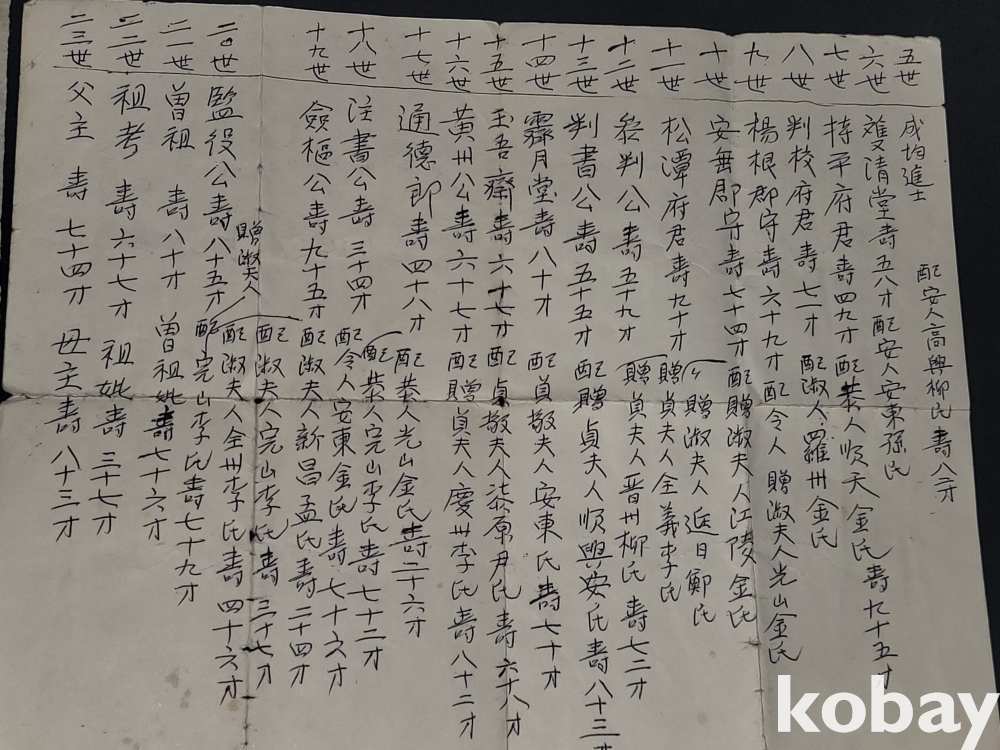 五世 成均進士 配安人高興柳氏 壽八才
六世 雙清堂 壽五八才 配安人安東孫氏
七世 持平府君 壽四九才 配恭人順天金氏 壽九十五才
八世 判校府君 壽七一才 配淑人羅州金氏
九世 楊根郡守 壽六十九才 配令人 贈淑夫人光山金氏
十世 安無郡守 壽七十四才 配贈淑夫人江陵金氏
十一世 松潭府君 壽九十才 贈淑夫人 延日鄭氏
贈貞夫人全義李氏
十二世 參判公 壽五十九才 贈貞夫人晋州柳氏 壽七二才
十三世 判書公 壽五十五才 配贈貞夫人順興安氏 壽八十三才
十四世 霽月堂 壽八十才 配貞敬夫人安東氏 壽七十才
十五世 玉吾齋 壽六十七才 配貞敬夫人漆原尹氏 壽六十八才
十六世 黃州公 壽六十七才 配贈貞夫人慶州李氏 壽八十二才
十七世 通德郎 壽四十八才 配恭人光山金氏 壽二十六才
配恭人完山李氏 壽七十二才
十八世 注書公 壽三十四才 配令人安東金氏 壽七十六才
十九世 僉樞公 壽九十五才 配淑夫人新昌孟氏 壽二十四才
配淑夫人完山李氏 壽三十七才
配淑夫人全州李氏 壽四十六才
二0世 監役公 壽八十五才 贈淑夫人 配完山李氏 壽七十九才
二一世 曾祖 壽八十才 曾祖妣 壽七十六才
二二世 祖考 壽六十七才 祖妣 壽三十七才
二三世 父主 壽七十四才 母主 壽八十三才
kobay